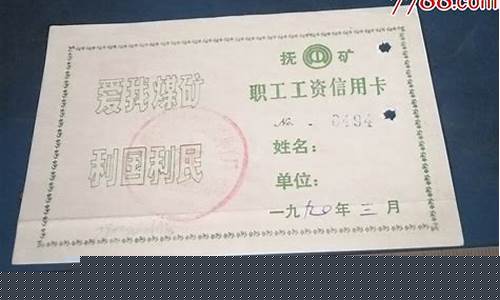 7788.com
抚 矿
职工工资信用卡
No. 0494
姓名:
单位:
一九九〇年三月
爱我煤矿
利国利民